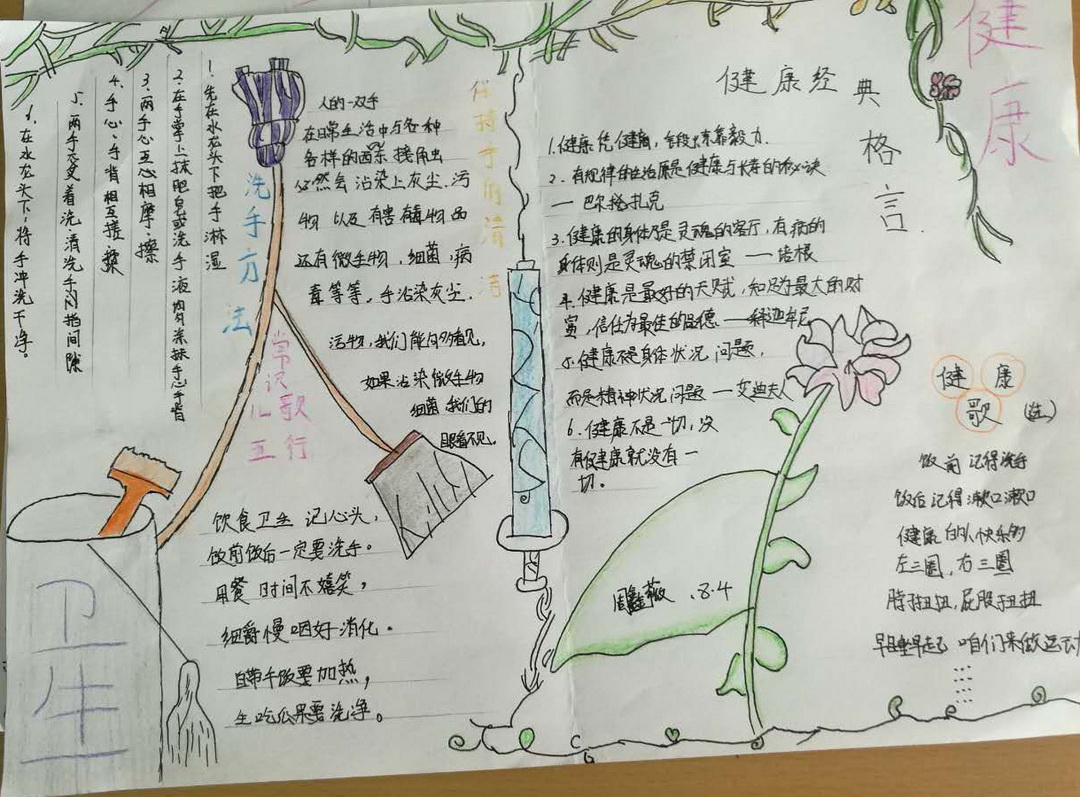 健康
健康经典格言
1.健康凭健菌,
2.有规律的生活原是健康与长寿的秘诀
— 巴尔扎克
3.健康的身体乃是灵魂的客厅,有病的
身体则是灵魂的禁闭室 — 培根
4.健康是最好的天赋,知足为最大的财
富,信任为最佳的品德. —释迦牟尼
5.健康不是身体状况问题,
而是精神状况问题 —艾迪夫人
6.健康不是一切,没
有健康就没有一
切。
健康歌
饭前记得洗手
饭后记得漱口漱口
健康的人快乐多
左三圈,右三圈
脖扭扭,屁股扭扭
早睡早起 咱们来做运动
......
.8.4
保持手的清洁
人的一双手
在日常生活中与各种
各样的西东接角虫
必然会沾染上灰尘.污
物以及有害有毒物品
还有微生物,细菌,病
毒等等,手沾染灰尘.
污物,我们能
如果沾染微生物
细菌,我们的
眼看不见.
洗手方法
1.先在水龙头下把手淋湿
2.在手掌上抹肥皂或洗手液
3.两手心互心相摩.擦
4.手心.手背相互搓.揉
5.两手交叉着洗.清洗手的指间隙
在水龙头下,将手冲洗干净。
常识儿歌
五行
饮食卫生记心头,
饭前饭后一定要洗手。
用餐时间不嬉笑,
细爵慢咽好消化。
自带午饭要加热,
生吃瓜果要洗净。
卫生